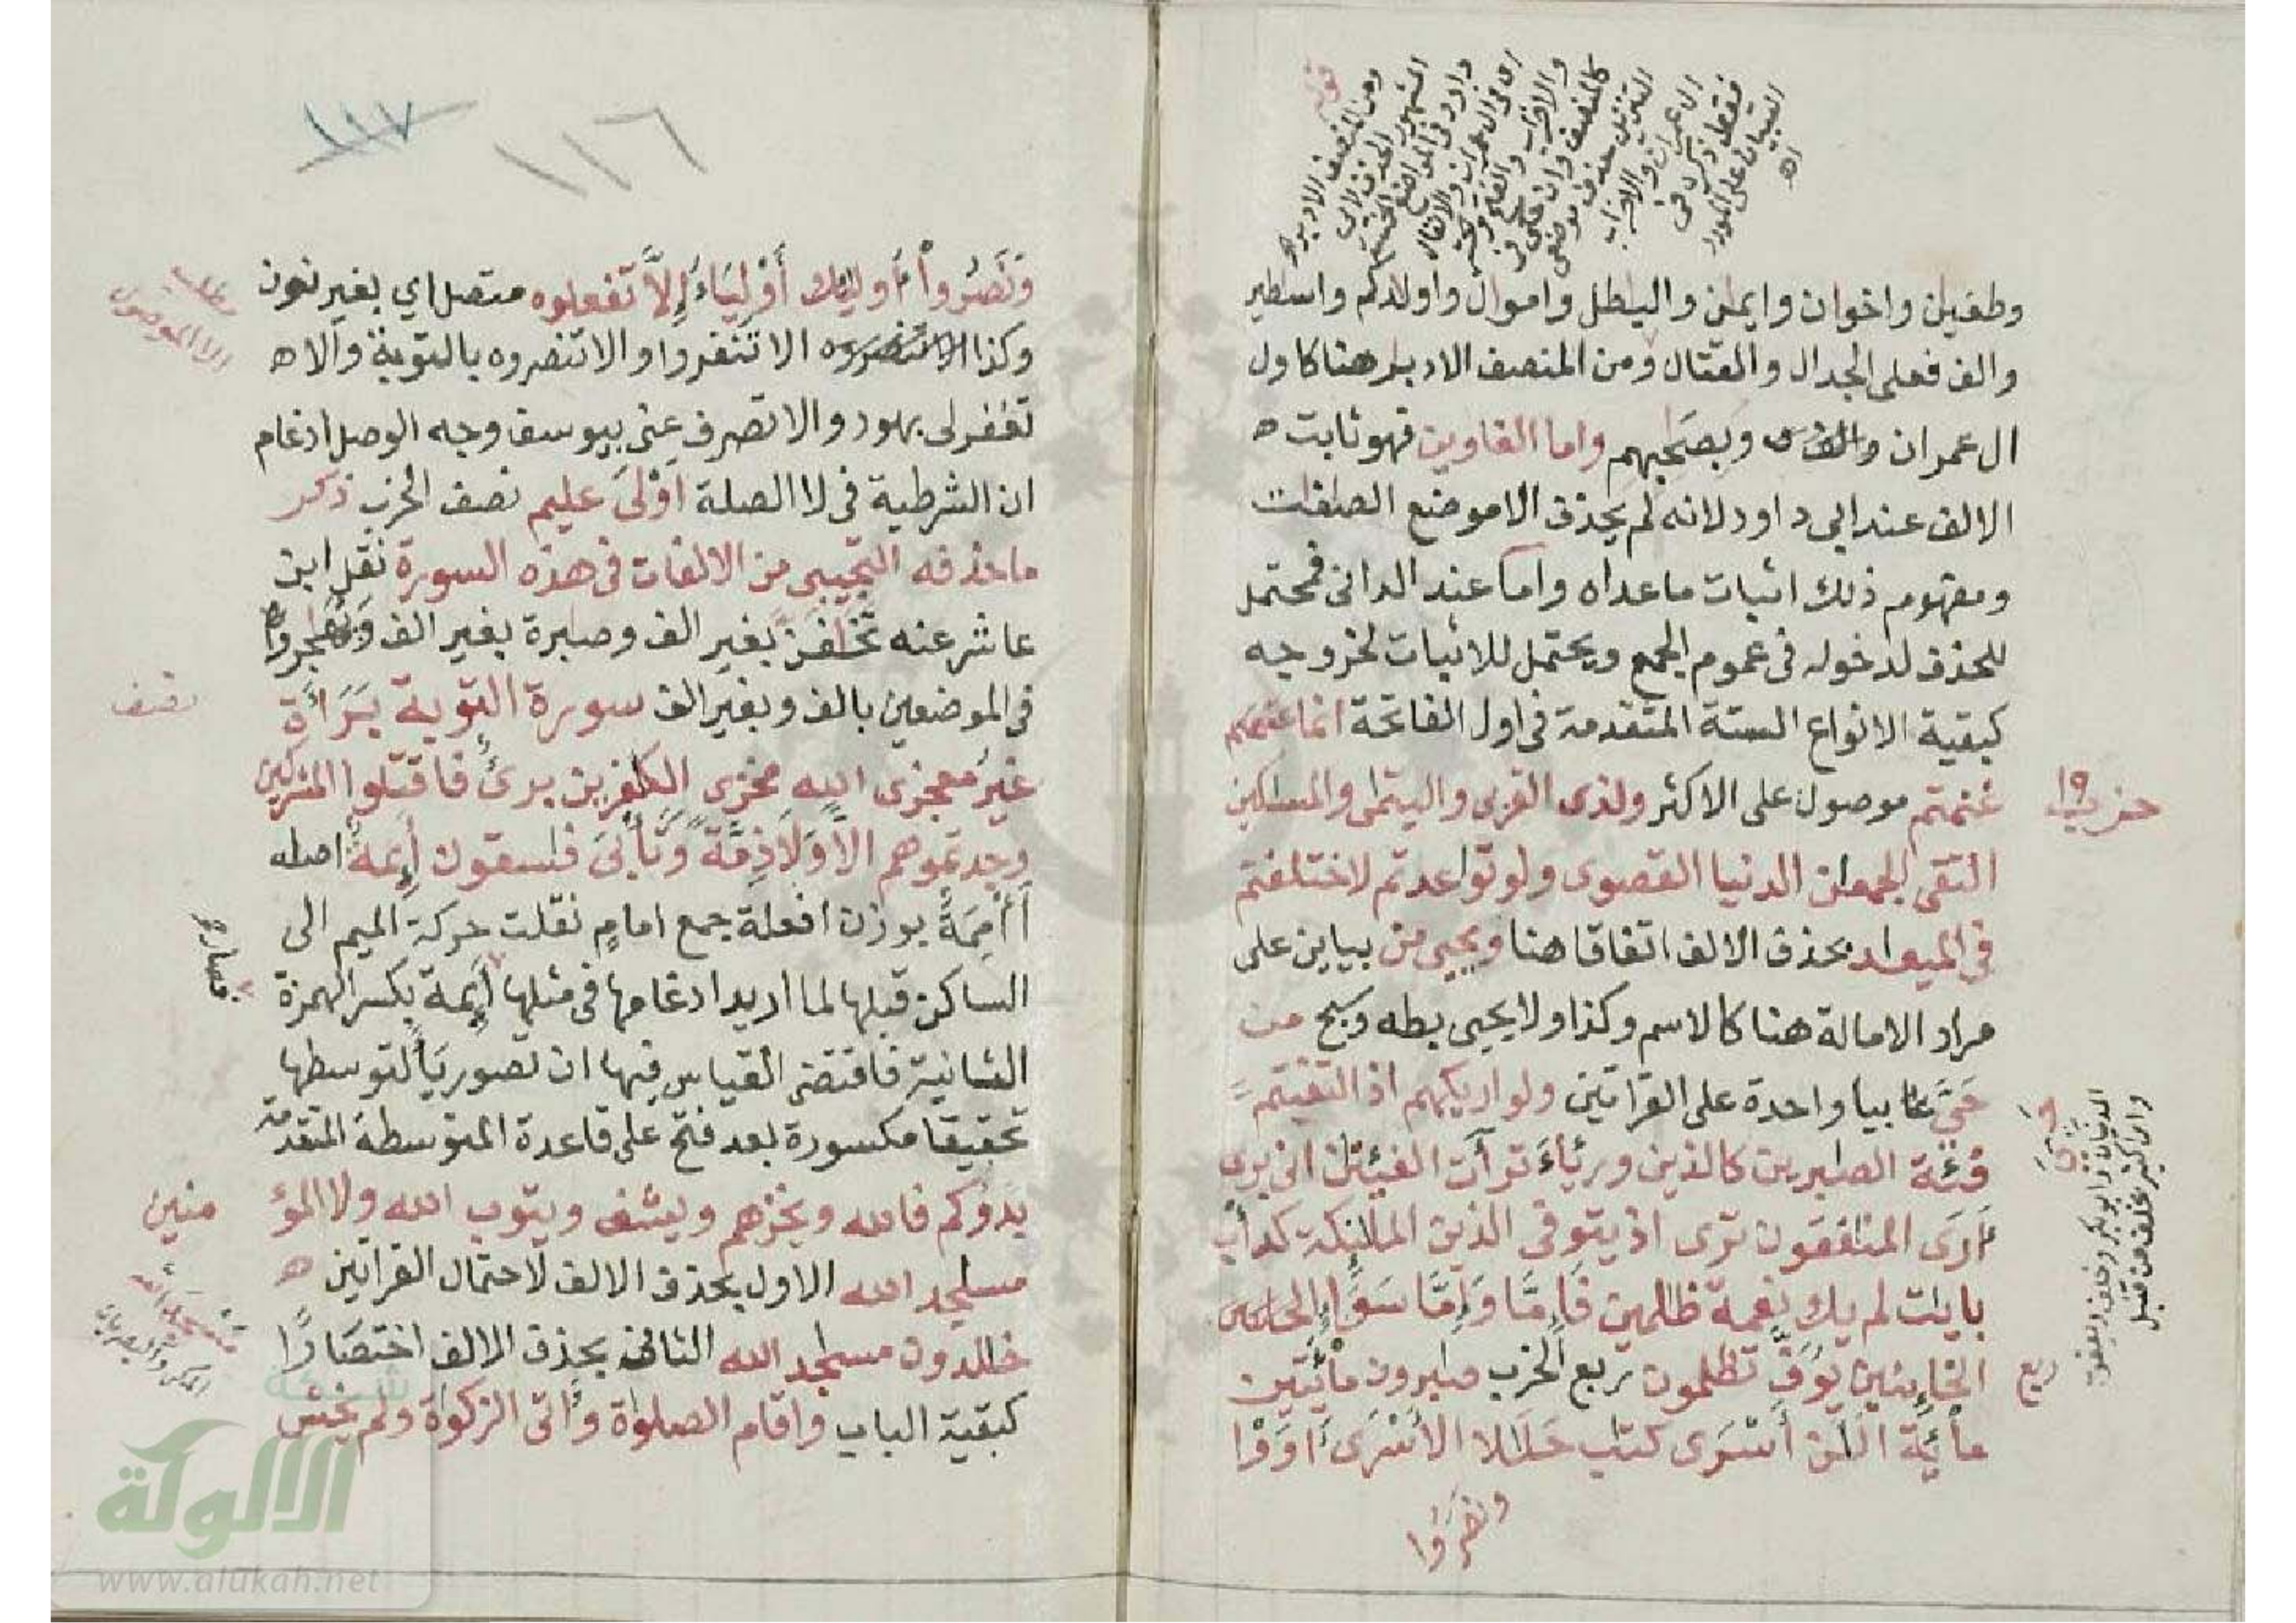 وطغين واخوان وايمان والباطل واموال واولادكم واساطير
والف فعلى الجدال والقتال ومن المنصف الادبار هنا كاول
ال عمران وبصحبهم واما الغاوين فهو ثابت ه
الالف عند ابي داود لانه لم يحذف الا موضع الصافات
ومفهوم ذلك اثبات ما عداه واما عند الداني فمحتمل
للحذف لدخوله في عموم الجمع ويحتمل للاثبات لخروجه
كبقية الانواع الستة المتقدمة في اول الفاتحة انما غنمتم
غنمتم موصول على الاكثر ولذى القربى واليتمى والمسكين
التقى الجمعن الدنيا القصوى ولو تواعدتم لاختلفتم
في الميعد بحذف الالف اتفاقا هنا ويحيى من بيابين على
مراد الامالة هنا كالاسم وكذا ولا يحيى بطه وسبح من
حي عن بيا واحدة على القراتين ولو اريكهم اذ التقيتم
فئة الصبرين كالذين ورئاء تراءت الفئتن انى برى
ارى المنفقون ترى اذ يتوفى الذين الملئكة كدأب
بايت لم يك نعمة ظلمين فاما واما سواء
الخائنين يوف تظلمون ربع الحزب صبرون مائتين
مائة الن أسرى كتب حللا الأسرى ءاووا
ونصروا
حزب ١٩
ربع
١١٦
١١٧
ونصروا أوليك أولياء إلا تفعلوه متصل اي بغير نون
وكذا الا تنفروا والا تنصروه بالتوبة والا ه
تغفر لى بهود والا تصرف عنى بيوسف وجه الوصل ادغام
ان الشرطية في لا الصلة أولى عليم نصف الحزب ذكر
ما حذفه التجيبي من الالفات في هذه السورة نقل ابن
عاشر عنه تخافن بغير الف وصابرة بغير الف وهاجروا
في الموضعين بالف وبغير الف سورة التوبة براءة
غير معجزى الله مخزى الكفرين برىء فاقتلوا المشركين
وجدتموهم إلا ولا ذمة وتأبى فسقون أيمة اصله
أأممة بوزن افعلة جمع امام نقلت حركة الميم الى
الساكن قبلها لما اريد ادغامها في مثلها أئمة بكسر الهمزة
الثانية فاقتضى القياس فيها ان تصور ياء لتوسطها
تحقيقا مكسورة بعد فتح على قاعدة المتوسطة المتقدمة
بدءوكم فالله ويخزهم ويشف ويتوب الله ولا المؤ
منين
مسجد الله الاول بحذف الالف لاحتمال القراتين ه
خلدون مسجد الله الثاني بحذف الالف اختصارا
كبقية الباب واقام الصلوة وءاتى الزكوة ولم يخش
الا الموصول
نصف
فصار
شبكة
الألوكة
www.alukah.net